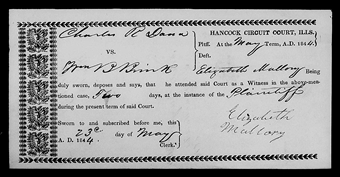 Charles R Dana
HANCOCK CIRCUIT COURT, ILLS.
VS.
Plff. At the May Term, A.D. 1844.
Deft.
Wm B Brink
Elizabeth Mallory Being
duly sworn, deposes and says, that he attended said Court as a Witness in the above-men-
tioned case, Two days, at the instance of the Plaintiff
during the present term of said Court.
Elizabeth
Mallory
Sworn to and subscribed before me, this
23d day of May
A. D. 1844.
Clerk.